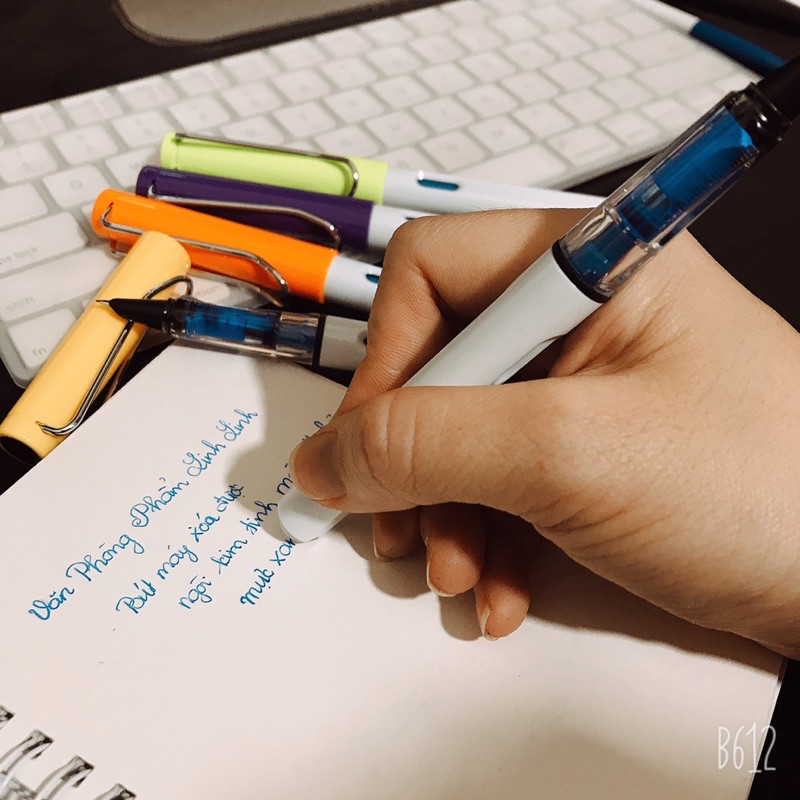 Văn Phòng Phẩm Linh Linh
Bút máy xóa được
ngòi kim tinh
mực xan
caps lock
shift
fn
B612